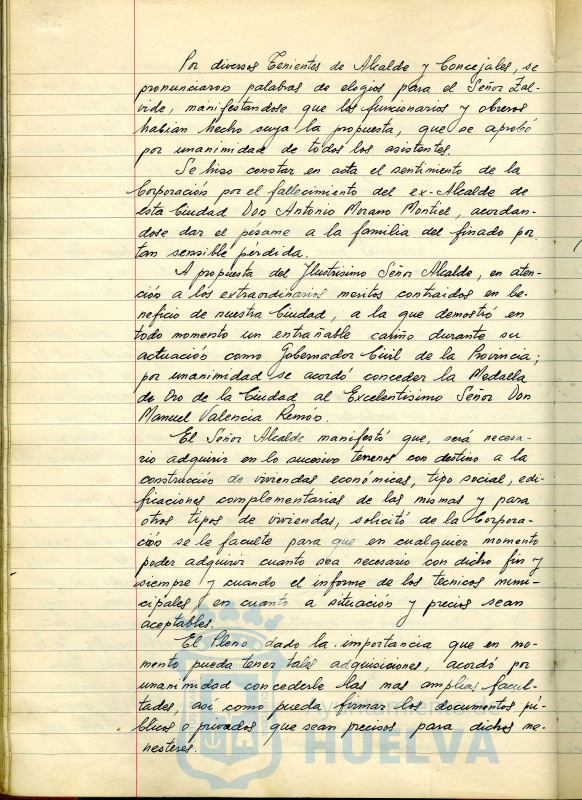 Por diversos Tenientes de Alcalde y Concejales, se
pronunciaron palabras de elogios para el Señor Zal-
vide, manifestandose que los funcionarios y obreros
habian hecho suya la propuesta, que se aprobó
por unanimidad de todos los asistentes.
Se hizo constar en acta el sentimiento de la
Corporación por el fallecimiento del ex-Alcalde de
esta Ciudad Don Antonio Morano Montiel, acordan-
dose dar el pésame a la familia del finado por
tan sensible pérdida.
A propuesta del Ilustrisimo Señor Alcalde, en aten-
ción a los extraordinarios meritos contraidos en be-
neficio de nuestra Ciudad, a la que demostró en
todo momento un entrañable cariño durante su
actuación como Gobernador Civil de la Provincia;
por unanimidad se acordó conceder la Medalla
de Oro de la Ciudad al Excelentisimo Señor Don
Manuel Valencia Remón.
El Señor Alcalde manifestó que, será necesa-
rio adquirir en lo sucesivo terrenos con destino a la
construcción de viviendas económicas, tipo social, edi-
ficaciones complementarias de las mismas y para
otros tipos de viviendas, solicitó de la Corpora-
ción se le faculte para que en cualquier momento
poder adquirir cuanto sea necesario con dicho fin y
siempre y cuando el informe de los tecnicos muni-
cipales, en cuanto a situación y precios sean
aceptables.
El Pleno dado la importancia que en mo-
mento pueda tener tales adquisiciones, acordó por
unanimidad concederle las mas amplias facul-
tades, así como pueda firmar los documentos pú-
blicos o privados que sean precisos para dichos me-
nesteres.
Ayuntamiento
HUELVA